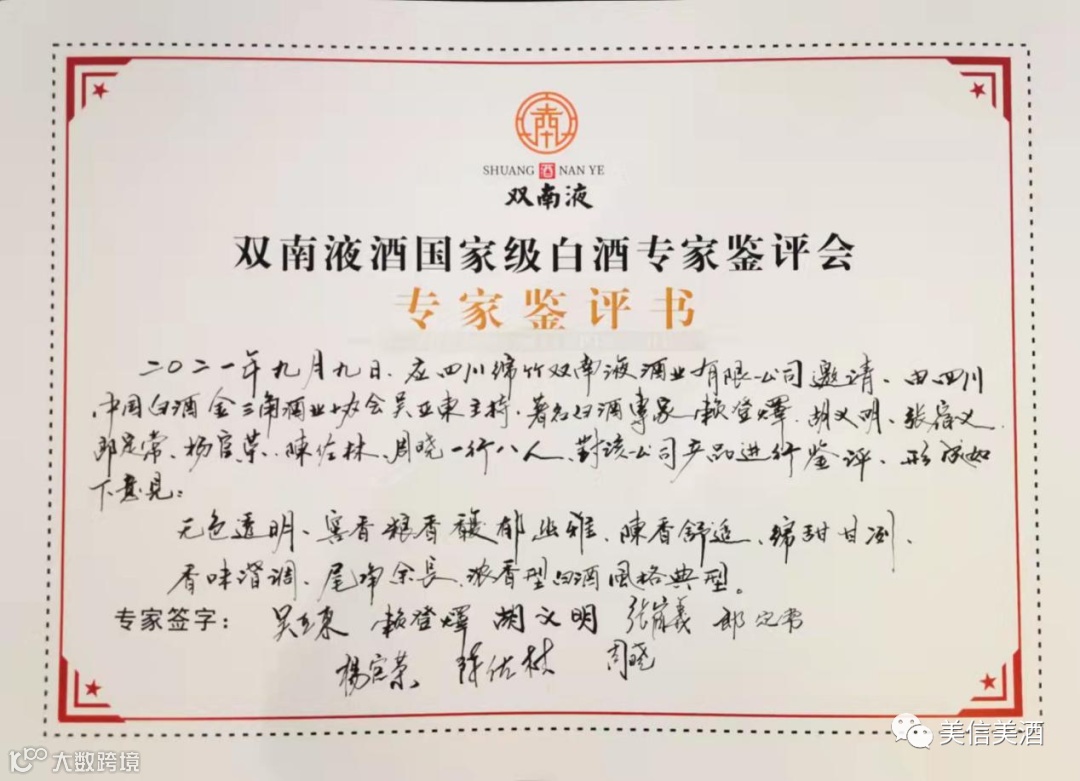 SHUANG 酒 NAN YE
双南液
双南液酒国家级白酒专家鉴评会
专家鉴评书
二〇二一年九月九日、应四川绵竹双南液酒业有限公司邀请、由四川
中国白酒金三角酒业协会吴亚东主持、著名白酒專家賴登燡、胡义明、张宿义、
郎定常、杨官荣、陳佐林、周晓一行八人、對该公司产品进行鉴评、形成如
下意见：
无色透明、窖香粮香馥郁幽雅、陳香舒适、绵甜甘冽、
香味谐调、尾净余長、浓香型白酒风格典型。
专家签字： 吴亚東 賴登燡 胡义明 张宿義 郎定常
楊官荣 陳佐林 周晓
美信美酒
大数跨境